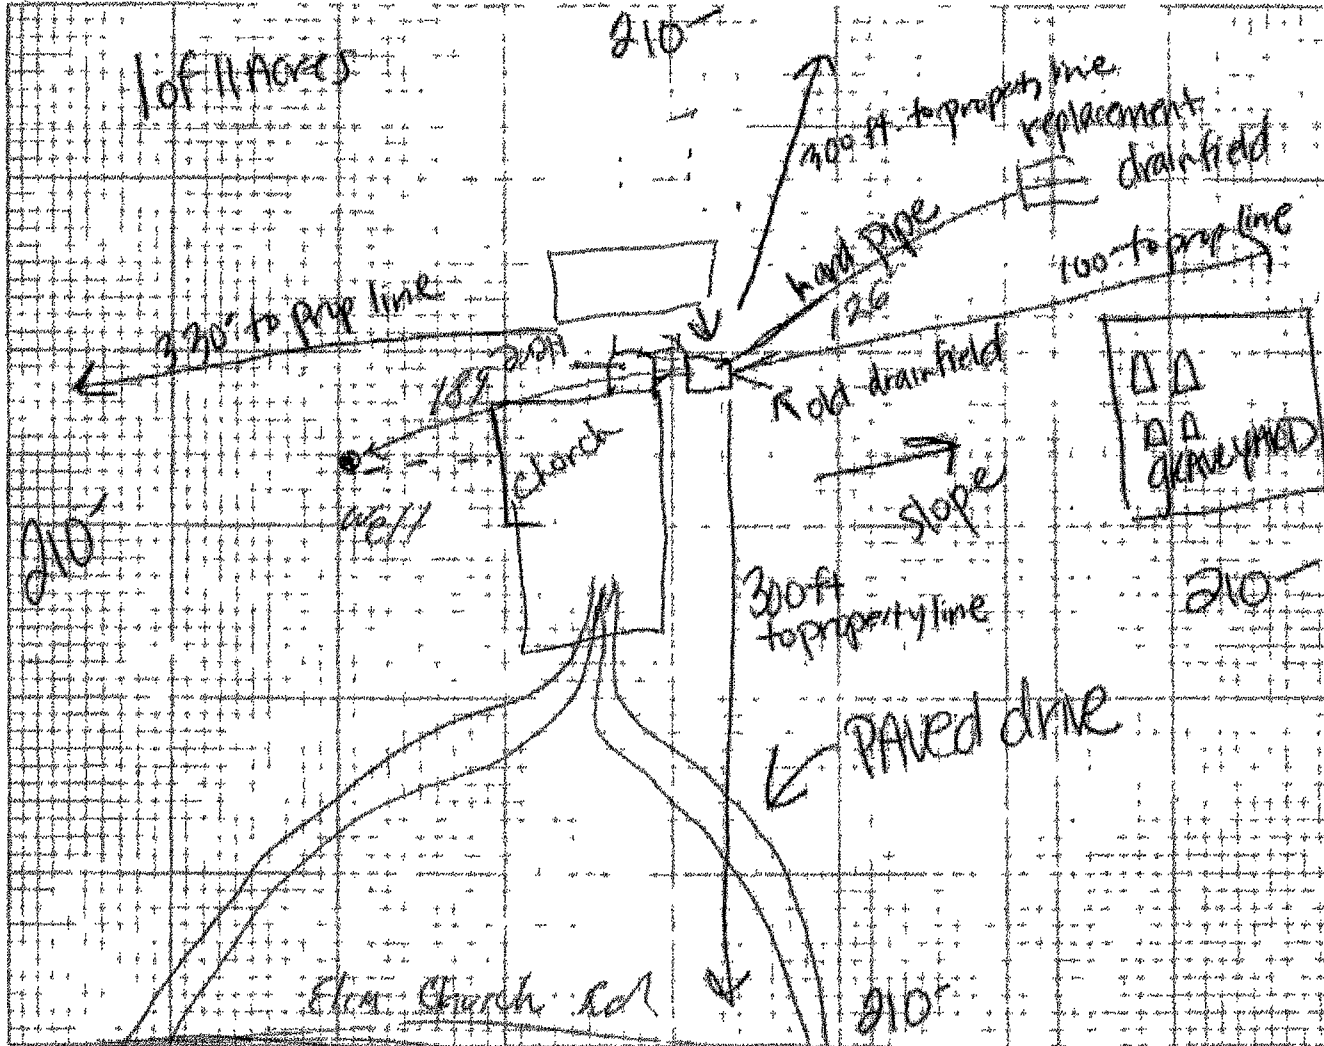 210'
1 of 11 Acres
300 ft to property line
replacement
drainfield
hard pipe
126
100' to prop line
330' to prop line
189
old drainfield
church
well
slope
GRAVEYARD
210'
210'
300 ft
to property line
PAVED drive
Elim Church Rd
210'